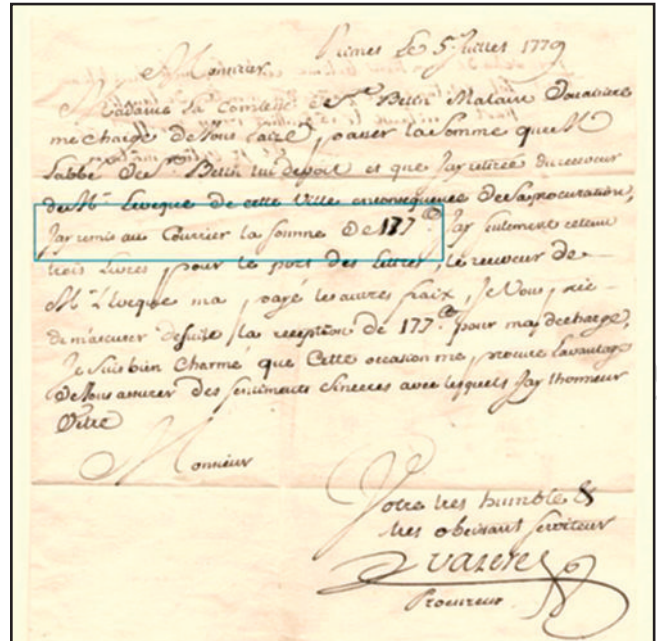 Le 5. Juillet 1779
Monsieur
Madame La Comtesse de St Belin Malain Douariere
me charge De Vous faire passer La Somme que M
Labbé De St Belin lui devoit et que Jay retirée du receveur
de Mr Leveque de cette Ville en consequence De Sa procuration,
Jay remis au Courrier la somme De 177 lt Jay seulement retenu
trois Livres pour le port des Lettres, le receveur de
Mr L'Eveque ma payé les autres fraix, Je Vous prie
de m'assurer de suite la reception de 177 lt pour ma decharge,
Je Suis bien Charmé que Cette occasion me procure Lavantage
De Vous assurer des sentiments Sinceres avec lesquels Jay lhonneur
D'être
Monsieur
Votre tres humble &
tres obeissant serviteur
Procureur